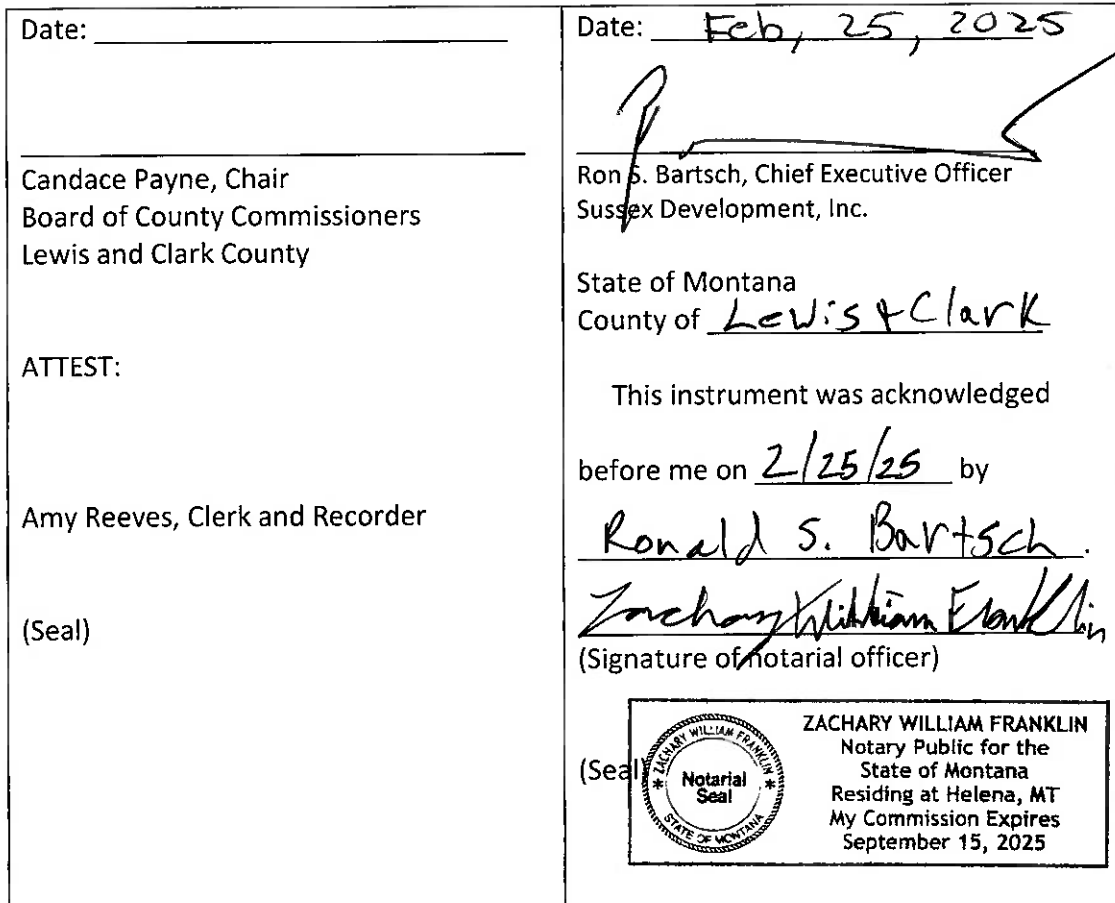 Date:
Candace Payne, Chair
Board of County Commissioners
Lewis and Clark County
ATTEST:
Amy Reeves, Clerk and Recorder
(Seal)
Date: Feb, 25, 2025
Ron S. Bartsch, Chief Executive Officer
Sussex Development, Inc.
State of Montana
County of Lewis & Clark
This instrument was acknowledged
before me on 2/25/25 by
Ronald S. Bartsch.
Zachary William Franklin
(Signature of notarial officer)
(Seal)
ZACHARY WILLIAM FRANKLIN
Notarial
Seal
STATE OF MONTANA
ZACHARY WILLIAM FRANKLIN
Notary Public for the
State of Montana
Residing at Helena, MT
My Commission Expires
September 15, 2025